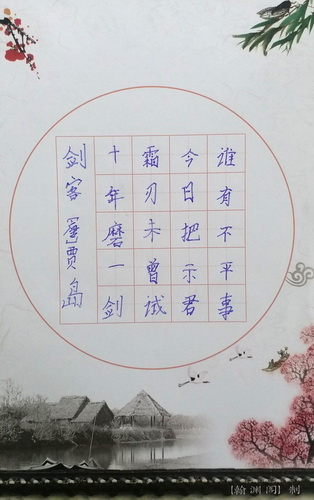 剑客【唐】贾岛
十年磨一剑
霜刃未曾试
今日把示君
谁有不平事
【翰渊阁】制